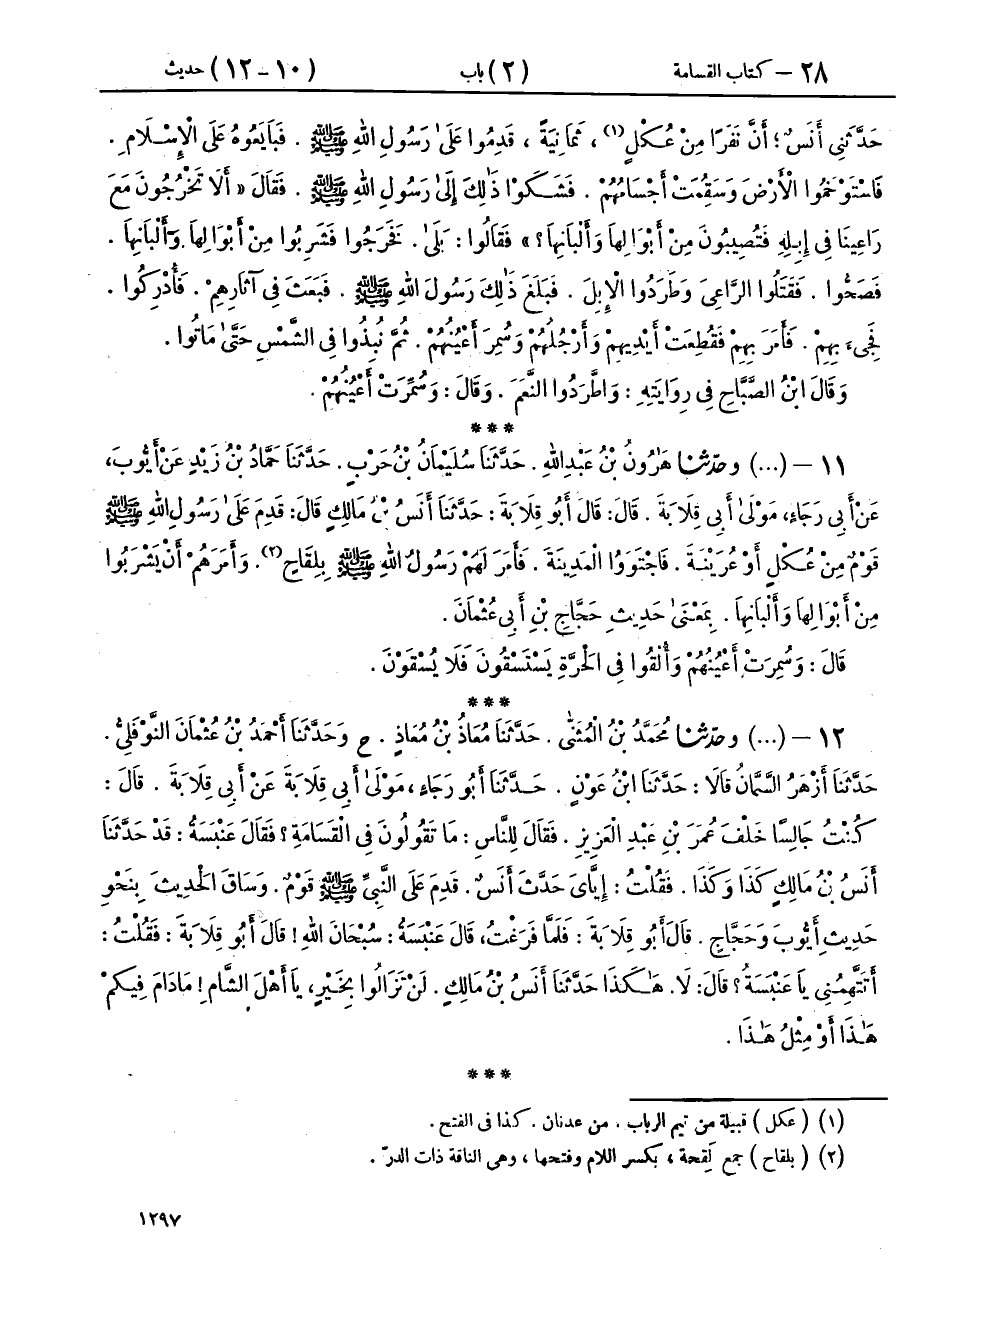 ٢٨ – كتاب القسامة (٢) باب (١٠–١٢) حديث
حَدَّثَنِي أَنَسٌ؛ أَنَّ نَفَرًا مِنْ عُكْلٍ(١)، ثَمَانِيَةً، قَدِمُوا عَلَىٰ رَسُولِ اللهِ ﷺ. فَبَايَعُوهُ عَلَى الْإِسْلَامِ.
فَاسْتَوْخَمُوا الْأَرْضَ وَسَقِمَتْ أَجْسَامُهُمْ. فَشَكَوْا ذَٰلِكَ إِلَىٰ رَسُولِ اللهِ ﷺ. فَقَالَ «أَلَا تَخْرُجُونَ مَعَ
رَاعِينَا فِي إِبِلِهِ فَتُصِيبُونَ مِنْ أَبْوَالِهَا وَأَلْبَانِهَا؟» فَقَالُوا: بَلَىٰ. فَخَرَجُوا فَشَرِبُوا مِنْ أَبْوَالِهَا وَأَلْبَانِهَا.
فَصَحُّوا. فَقَتَلُوا الرَّاعِيَ وَطَرَدُوا الْإِبِلَ. فَبَلَغَ ذَٰلِكَ رَسُولَ اللهِ ﷺ. فَبَعَثَ فِي آثَارِهِمْ. فَأُدْرِكُوا.
فَجِيءَ بِهِمْ. فَأَمَرَ بِهِمْ فَقُطِعَتْ أَيْدِيهِمْ وَأَرْجُلُهُمْ وَسُمِرَ أَعْيُنُهُمْ. ثُمَّ نُبِذُوا فِي الشَّمْسِ حَتَّىٰ مَاتُوا.
وَقَالَ ابْنُ الصَّبَّاحِ فِي رِوَايَتِهِ: وَاطَّرَدُوا النَّعَمَ. وَقَالَ: وَسُمِّرَتْ أَعْيُنُهُمْ.
* * *
١١ – (...) وحدّثنا هَٰرُونُ بْنُ عَبْدِ اللهِ. حَدَّثَنَا سُلَيْمَانُ بْنُ حَرْبٍ. حَدَّثَنَا حَمَّادُ بْنُ زَيْدٍ عَنْ أَيُّوبَ،
عَنْ أَبِي رَجَاءٍ، مَوْلَىٰ أَبِي قِلَابَةَ. قَالَ: قَالَ أَبُو قِلَابَةَ: حَدَّثَنَا أَنَسُ بْنُ مَالِكٍ قَالَ: قَدِمَ عَلَىٰ رَسُولِ اللهِ ﷺ
قَوْمٌ مِنْ عُكْلٍ أَوْ عُرَيْنَةَ. فَاجْتَوَوُا الْمَدِينَةَ. فَأَمَرَ لَهُمْ رَسُولُ اللهِ ﷺ بِلِقَاحٍ(٢). وَأَمَرَهُمْ أَنْ يَشْرَبُوا
مِنْ أَبْوَالِهَا وَأَلْبَانِهَا. بِمَعْنَىٰ حَدِيثِ حَجَّاجِ بْنِ أَبِي عُثْمَانَ.
قَالَ: وَسُمِرَتْ أَعْيُنُهُمْ وَأُلْقُوا فِي الْحَرَّةِ يَسْتَسْقُونَ فَلَا يُسْقَوْنَ.
* * *
١٢ – (...) وحدّثنا مُحَمَّدُ بْنُ الْمُثَنَّىٰ. حَدَّثَنَا مُعَاذُ بْنُ مُعَاذٍ. ح وَحَدَّثَنَا أَحْمَدُ بْنُ عُثْمَانَ النَّوْفَلِيُّ.
حَدَّثَنَا أَزْهَرُ السَّمَّانُ قَالَا: حَدَّثَنَا ابْنُ عَوْنٍ. حَدَّثَنَا أَبُو رَجَاءٍ، مَوْلَىٰ أَبِي قِلَابَةَ عَنْ أَبِي قِلَابَةَ. قَالَ:
كُنْتُ جَالِسًا خَلْفَ عُمَرَ بْنِ عَبْدِ الْعَزِيزِ. فَقَالَ لِلنَّاسِ: مَا تَقُولُونَ فِي الْقَسَامَةِ؟ فَقَالَ عَنْبَسَةُ: قَدْ حَدَّثَنَا
أَنَسُ بْنُ مَالِكٍ كَذَا وَكَذَا. فَقُلْتُ: إِيَّايَ حَدَّثَ أَنَسٌ. قَدِمَ عَلَى النَّبِيِّ ﷺ قَوْمٌ. وَسَاقَ الْحَدِيثَ بِنَحْوِ
حَدِيثِ أَيُّوبَ وَحَجَّاجٍ. قَالَ أَبُو قِلَابَةَ: فَلَمَّا فَرَغْتُ، قَالَ عَنْبَسَةُ: سُبْحَانَ اللهِ! قَالَ أَبُو قِلَابَةَ: فَقُلْتُ:
أَتَتَّهِمُنِي يَا عَنْبَسَةُ؟ قَالَ: لَا. هَٰكَذَا حَدَّثَنَا أَنَسُ بْنُ مَالِكٍ. لَنْ تَزَالُوا بِخَيْرٍ، يَا أَهْلَ الشَّامِ! مَادَامَ فِيكُمْ
هَٰذَا أَوْ مِثْلُ هَٰذَا.
* * *
(١) (عكل) قبيلة من تيم الرباب، من عدنان. كذا فى الفتح.
(٢) (بلقاح) جمع لِقحة، بكسر اللام وفتحها، وهى الناقة ذات الدرّ.
١٢٩٧